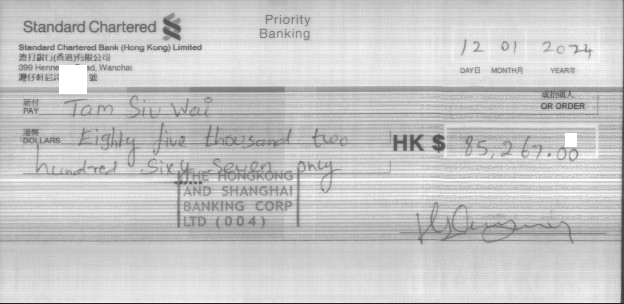 Standard Chartered
Priority
Banking
Standard Chartered Bank (Hong Kong) Limited
渣打銀行(香港)有限公司
399 Henne Road, Wanchai
灣仔軒尼 號
12 01 2024
DAY日 MONTH月 YEAR年
祈付
PAY Tam Siu Wai
或抬頭人
OR ORDER
港幣
DOLLARS Eighty five thousand two
hundred Sixty Seven only
HK$ 85,267.00
THE HONGKONG
AND SHANGHAI
BANKING CORP
LTD (004)